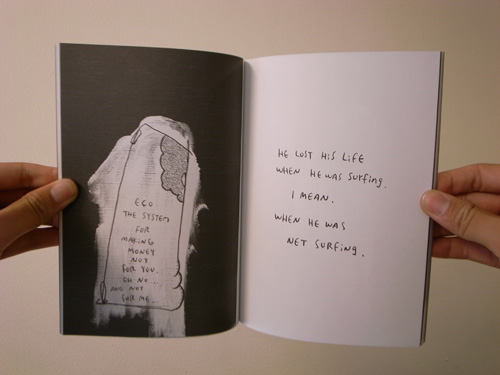 EGO
THE SYSTEM
FOR
MAKING
MONEY
NOT
FOR YOU.
OH NO..
AND NOT
FOR ME..
HE LOST HIS LIFE
WHEN HE WAS SURFING.
I MEAN.
WHEN HE WAS
NET SURFING.